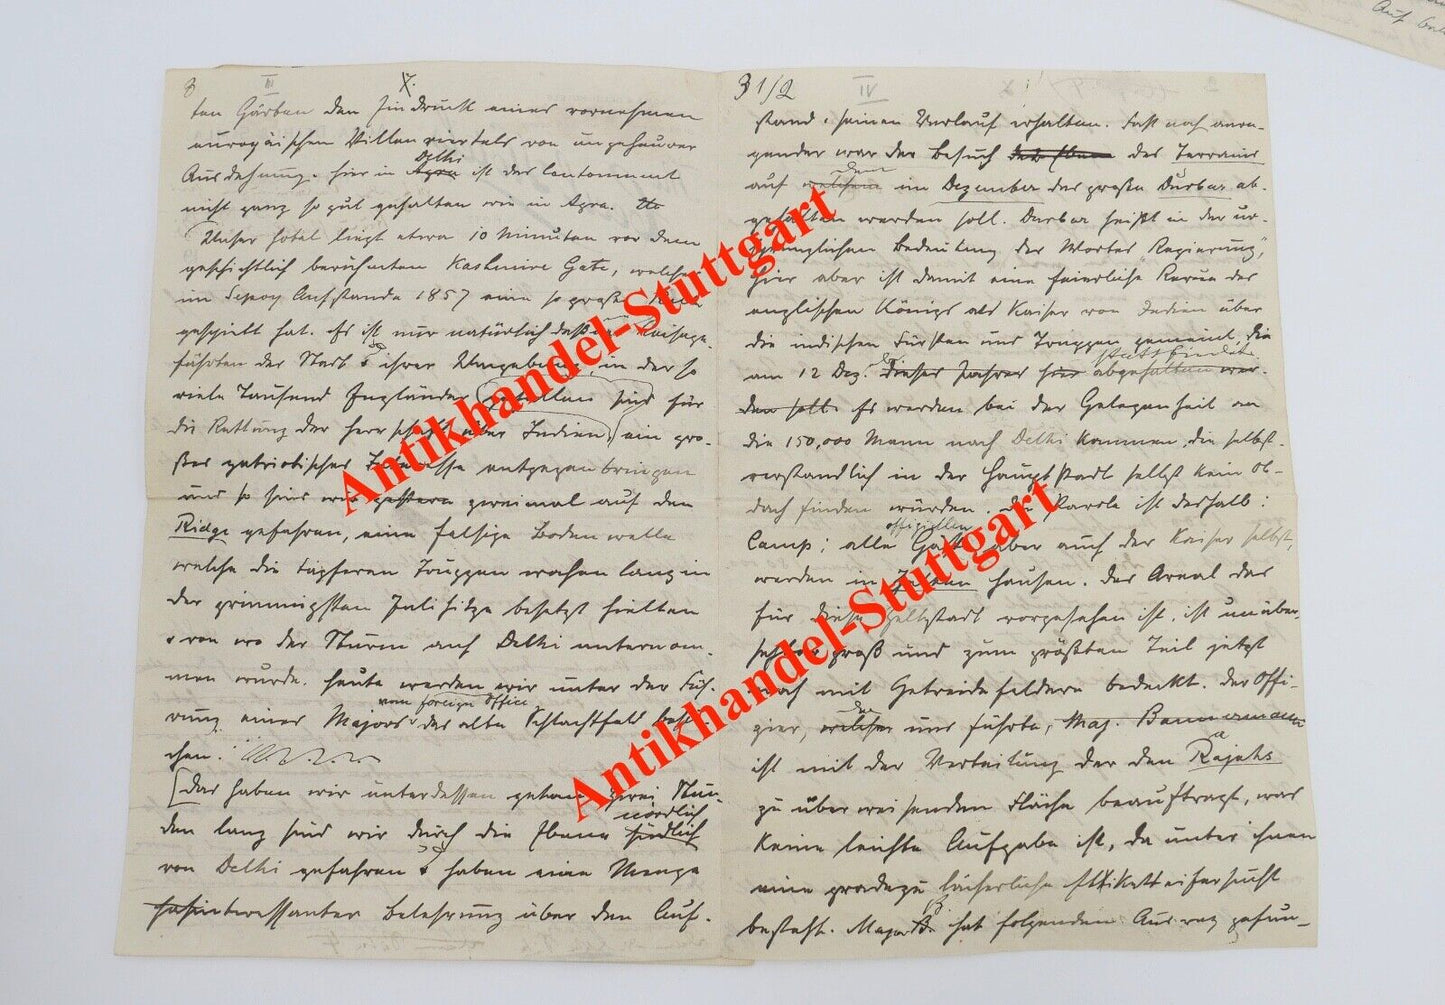 3 III X.
ten Gärten den Eindruck eines vornehmen
europäischen Villenviertels von ungeheurer
Ausdehnung. Hier in Agra Delhi ist das Cantonment
nicht ganz so gut gehalten wie in Agra.
Unser Hotel liegt etwa 10 Minuten vor dem
geschichtlich berühmten Kashmire Gate, welches
im Sepoy Aufstande 1857 eine so große Rolle
gespielt hat. Es ist nur natürlich daß
führten der Stadt & ihrer Umgebung, in der so
viele Tausend Engländer gefallen sind für
die Rettung der Herrschaft über Indien, ein gro-
ßes patriotisches Interesse entgegenbringen
und so sind wir gestern zweimal auf den
Ridge gefahren, eine felsige Bodenwelle
welche die tapferen Truppen wochenlang in
der grimmigsten Julihitze besetzt hielten
& von wo der Sturm auf Delhi unternom-
men wurde. Heute werden wir unter der Füh-
vom foreign Office
rung eines Majors das alte Schlachtfeld besu-
chen.
[Das haben wir unterdessen getan zwei Stun-
nördlich
den lang sind wir durch die Ebene südlich
von Delhi gefahren & haben eine Menge
interessanter Belehrung über den Auf-
31/2 IV
stand & seinen Verlauf erhalten. Fast noch anre-
gender war der Besuch des Terrains
auf welchem dem im Dezember das große Durbar ab-
gehalten werden soll. Durbar heißt in der ur-
sprünglichen Bedeutung des Wortes "Regierung",
hier aber ist damit eine feierliche Revue des
englischen Königs als Kaiser von Indien über
die indischen Fürsten und Truppen gemeint, die
stattfindet
am 12 Dez. dieses Jahres hier abgehalten wer-
den soll. Es werden bei der Gelegenheit an
die 150,000 Mann nach Delhi kommen, die selbst-
verständlich in der Hauptstadt selbst kein Ob-
dach finden würden. Die Parole ist deshalb:
offiziellen
Camp; alle Gäste, aber auch der Kaiser selbst,
werden in Zelten hausen. Das Areal das
für diese Zeltstadt vorgesehen ist, ist unüber-
sehbar groß und zum größten Teil jetzt
noch mit Getreidefeldern bedeckt. Der Offi-
zier, welcher der uns führte, Maj. Bannermann
ist mit der Verteilung der den Rajahs
zu überweisenden Fläche beauftragt, was
keine leichte Aufgabe ist, da unter ihnen
eine geradezu lächerliche Etikatteifersucht
besteht. Major B. hat folgenden Ausweg gefun-
Auf
Antikhandel-Stuttgart
Antikhandel-Stuttgart